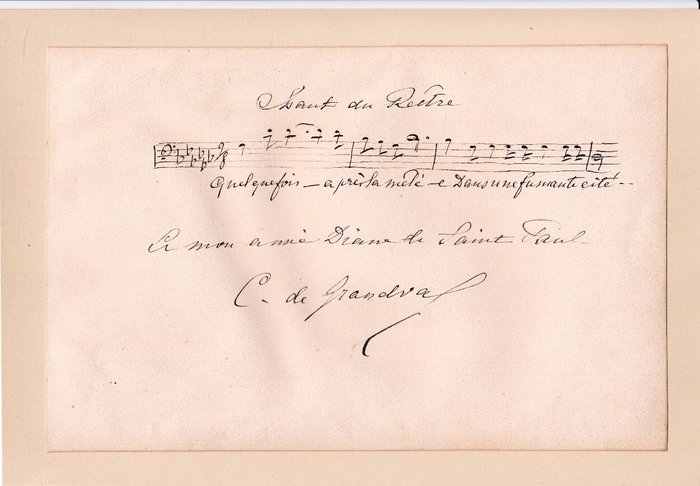 Chant du Reître
Quelquefois — après la mêlé — e Dans une fumante cité - -
A mon amie Diane de Saint Paul
C. de Grandval